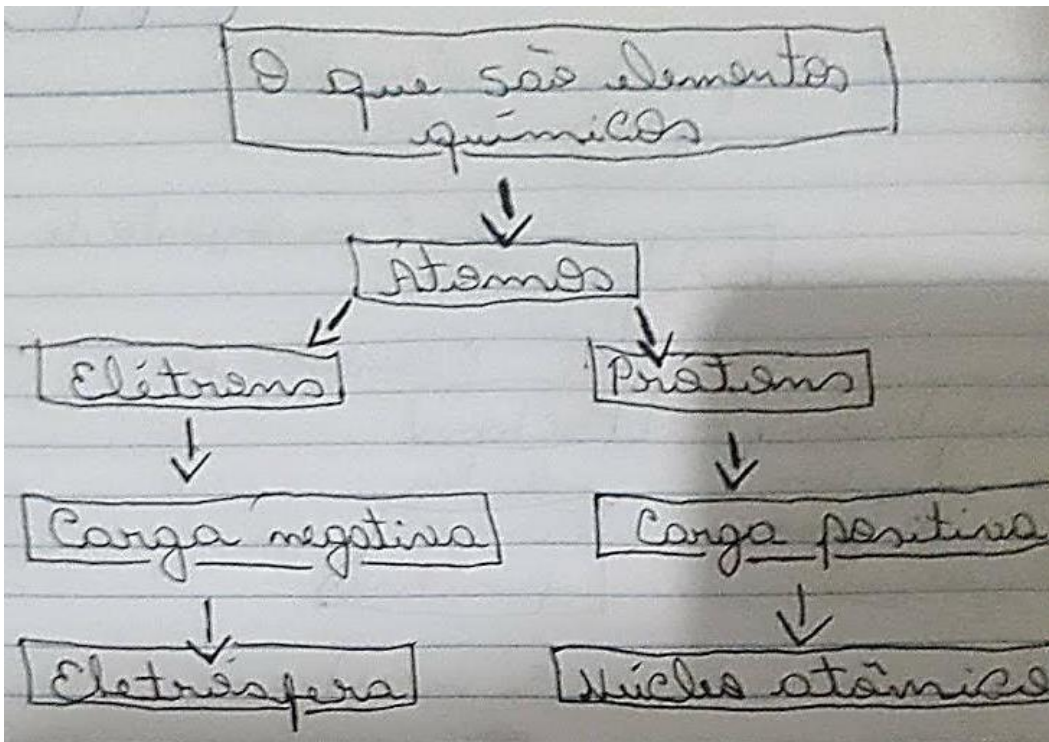 O que são elementos
químicos
Átomos
Elétrons
Prótons
Carga negativa
Carga positiva
Eletrósfera
Núcleo atômico